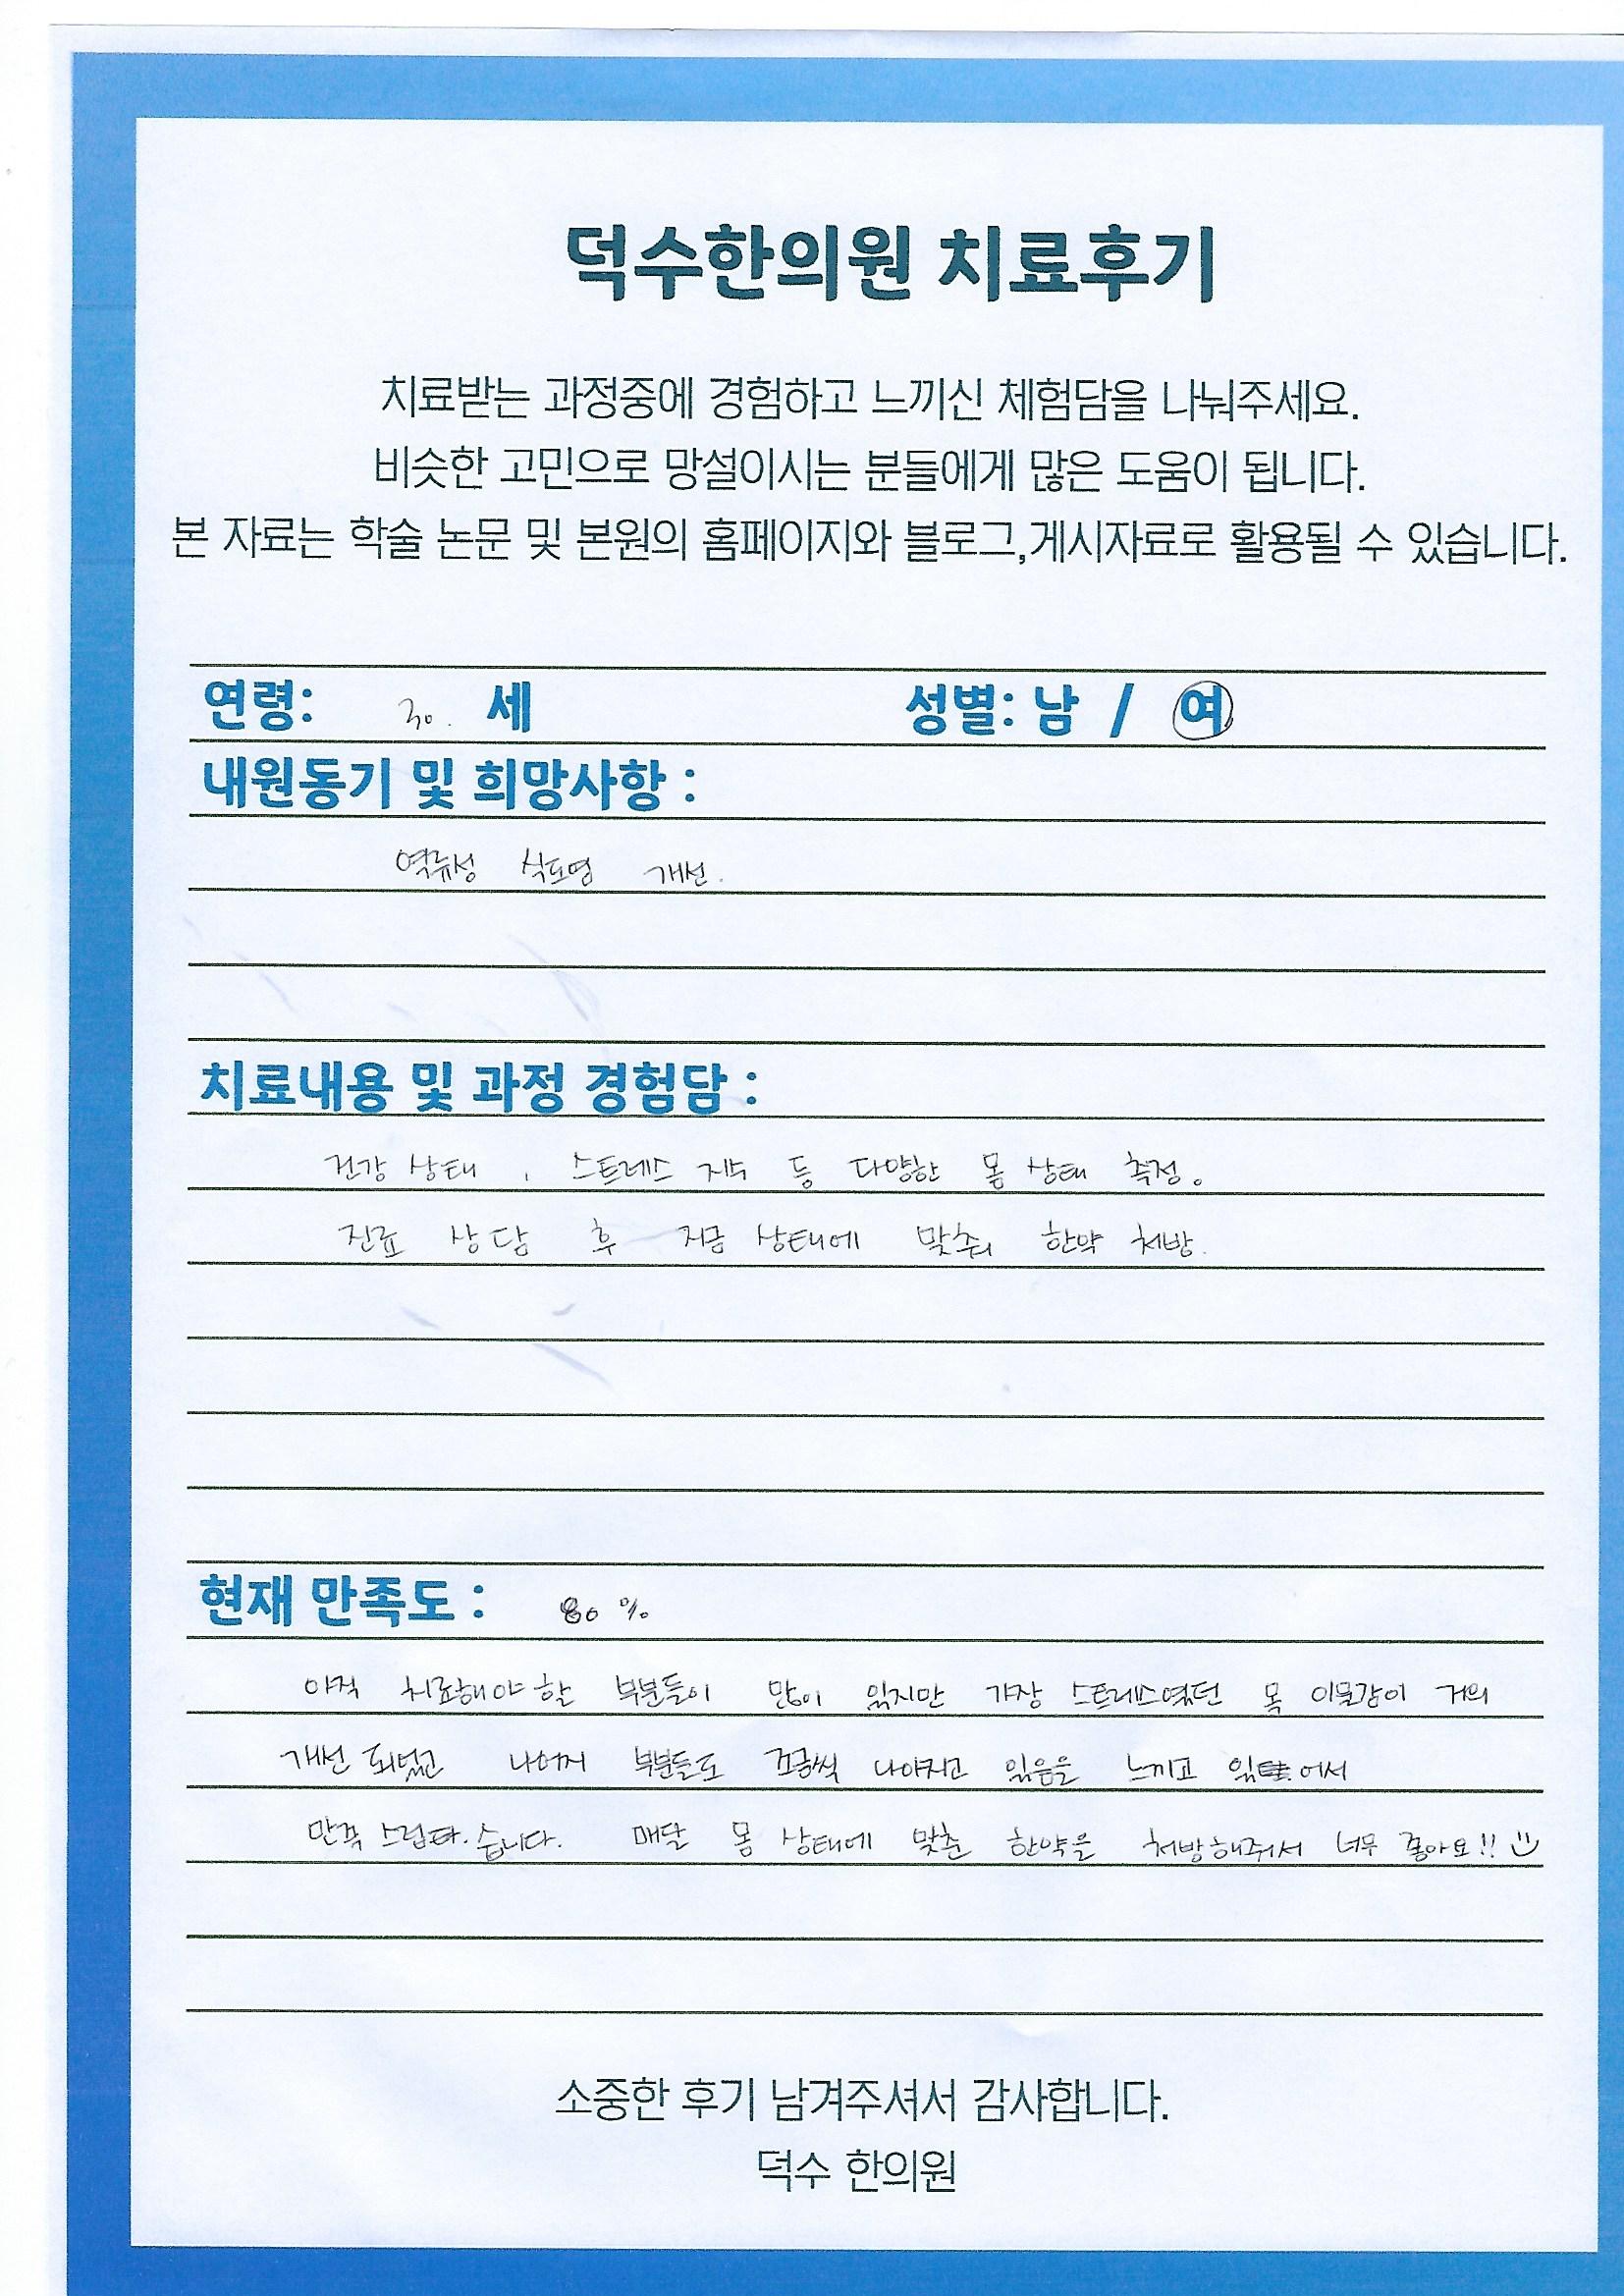 덕수한의원 치료후기
치료받는 과정중에 경험하고 느끼신 체험담을 나눠주세요.
비슷한 고민으로 망설이시는 분들에게 많은 도움이 됩니다.
본 자료는 학술 논문 및 본원의 홈페이지와 블로그,게시자료로 활용될 수 있습니다.
연령: 30. 세 성별: 남 / 여
내원동기 및 희망사항 :
역류성 식도염 개선.
치료내용 및 과정 경험담 :
건강 상태, 스트레스 지수 등 다양한 몸 상태 측정.
진료 상담 후 지금 상태에 맞춰 한약 처방.
현재 만족도 : 80 %
아직 치료해야 할 부분들이 많이 있지만 가장 스트레스였던 목 이물감이 거의
개선 되었고 나머지 부분들도 조금씩 나아지고 있음을 느끼고 있어서
만족스럽습니다. 매달 몸 상태에 맞춘 한약을 처방해주셔서 너무 좋아요!!
소중한 후기 남겨주셔서 감사합니다.
덕수 한의원